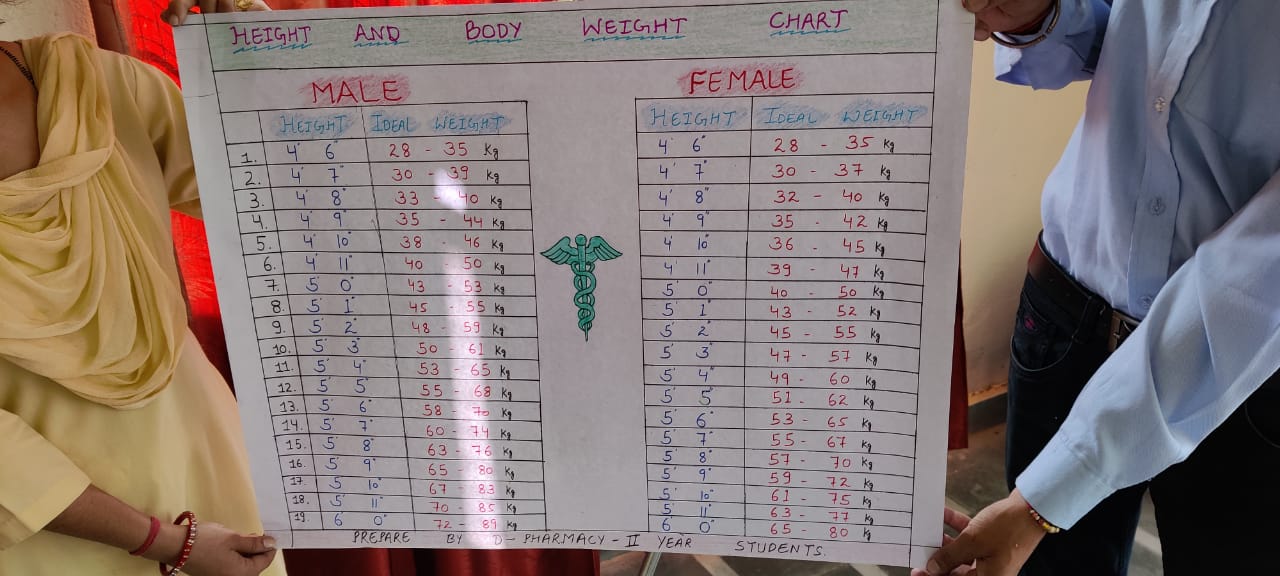 HEIGHT AND BODY WEIGHT CHART
MALE FEMALE
HEIGHT IDEAL WEIGHT HEIGHT IDEAL WEIGHT
1. 4' 6" 28 - 35 Kg 4' 6" 28 - 35 Kg
2. 4' 7" 30 - 39 Kg 4' 7" 30 - 37 Kg
3. 4' 8" 33 - 40 Kg 4' 8" 32 - 40 Kg
4. 4' 9" 35 - 44 Kg 4' 9" 35 - 42 Kg
5. 4' 10" 38 - 46 Kg 4' 10" 36 - 45 Kg
6. 4' 11" 40 50 Kg 4' 11" 39 - 47 Kg
7. 5' 0" 43 - 53 Kg 5' 0" 40 - 50 Kg
8. 5' 1" 45 - 55 Kg 5' 1" 43 - 52 Kg
9. 5' 2" 48 - 59 Kg 5' 2" 45 - 55 Kg
10. 5' 3" 50 - 61 Kg 5' 3" 47 - 57 Kg
11. 5' 4" 53 - 65 Kg 5' 4" 49 - 60 Kg
12. 5' 5" 55 - 68 Kg 5' 5" 51 - 62 Kg
13. 5' 6" 58 - 70 Kg 5' 6" 53 - 65 Kg
14. 5' 7" 60 - 74 Kg 5' 7" 55 - 67 Kg
15. 5' 8" 63 - 76 Kg 5' 8" 57 - 70 Kg
16. 5' 9" 65 - 80 Kg 5' 9" 59 - 72 Kg
17. 5 10" 67 - 83 Kg 5' 10" 61 - 75 Kg
18. 5' 11" 70 - 85 Kg 5' 11" 63 - 77 Kg
19. 6 0" 72 - 89 Kg 6' 0" 65 - 80 Kg
PREPARE BY D-PHARMACY-II YEAR STUDENTS.